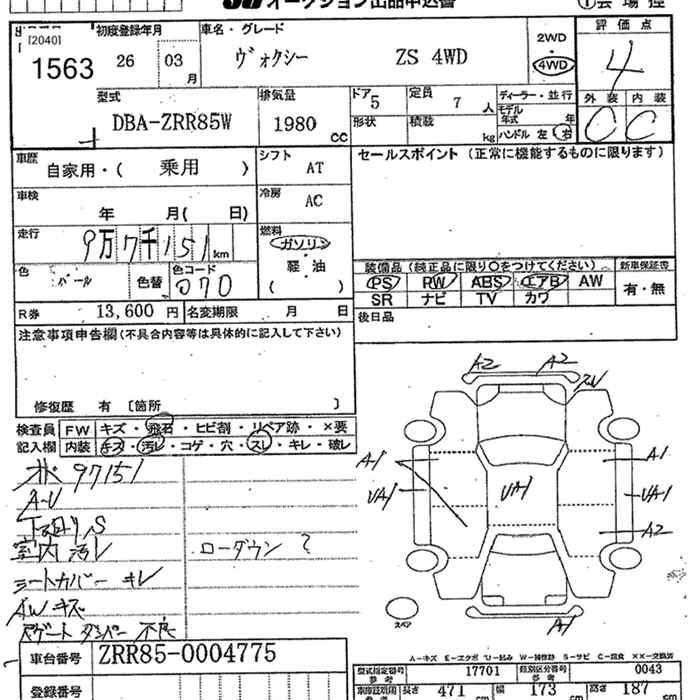 オークション出品申込書
①会場控
[2040]
1563
初度登録年月
26 03月
車名・グレード
ヴォクシー ZS 4WD
2WD
4WD
評価点
4
外装 内装
C C
型式
DBA-ZRR85W
排気量
1980 cc
ドア 5
形状
定員 7 人
積載 kg
ディーラー・並行
モデル年式 年
ハンドル 左・右
車歴 自家用・( 乗用 )
シフト AT
セールスポイント (正常に機能するものに限ります)
車検 年 月( 日)
冷房 AC
走行 9万7千151km
燃料
ガソリン
軽・油
( )
色 パール 色替 色コード 070
装備品 (純正品に限り○をつけてください)
PS PW ABS エアB AW
SR ナビ TV カワ
新車保証書
有・無
R券 13,600 円 名変期限 月 日
後日品
注意事項申告欄(不具合内容等は具体的に記入して下さい)
修復歴 有 [箇所 ]
検査員 FW キズ・飛石・ヒビ割・リペア跡・×要
記入欄 内装 キズ・汚レ・コゲ・穴・スレ・キレ・破レ
97151
A-U
下回りS
室内汚レ
ローダウン?
シートカバー キレ
AWキズ
ダンパー 不良
A2 A2
A1 A1
UA1 UA1 UA1
A2
A1
スペア
A-キズ E-エクボ U-凹み W-補修跡 S-サビ C-腐食 XX-交換済
車台番号 ZRR85-0004775
登録番号
型式指定番号 参考 17701 類別区分番号 参考 0043
長さ 471 cm 幅 173 cm 高さ 187 cm